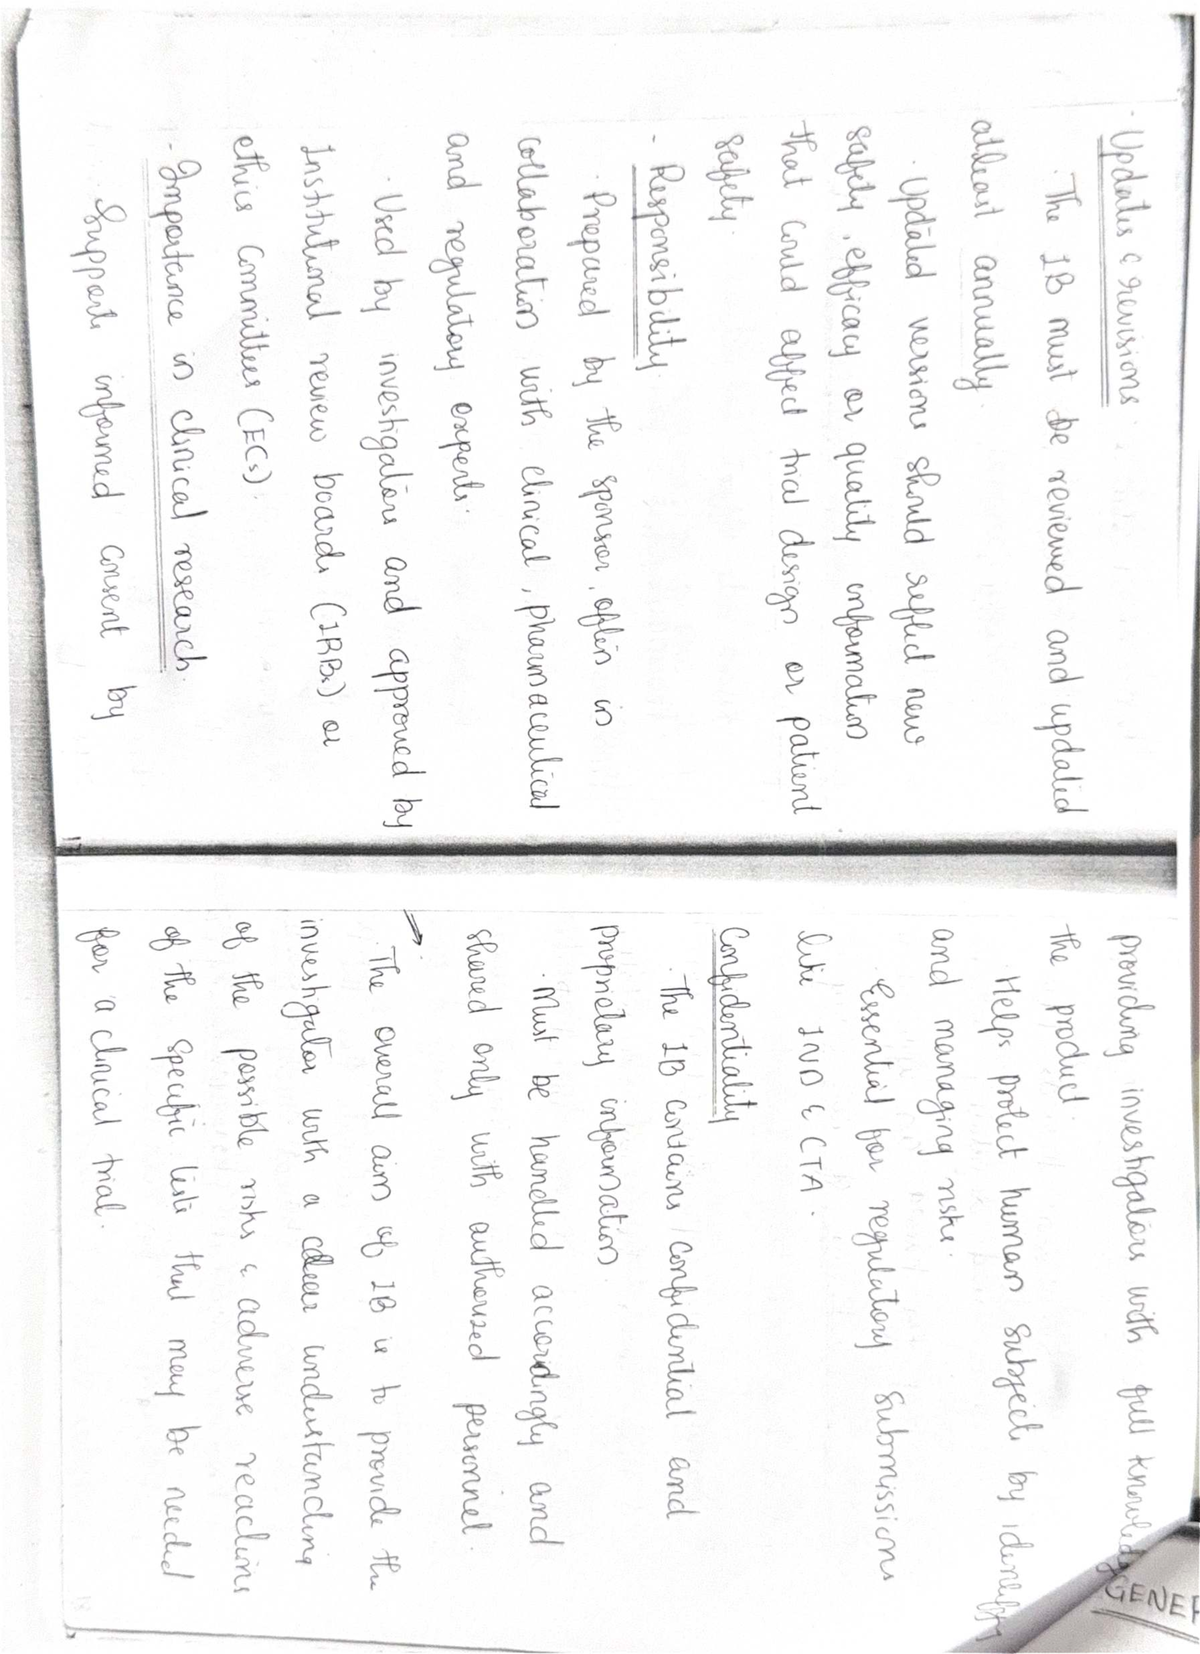 - Updates & revisions
· The IB must be reviewed and updated
atleast annually.
· Updated versions should reflect new
safety, efficacy or quality information
that could affect trial design or patient
safety.
- Responsibility.
· Prepared by the sponsor, often in
collaboration with clinical, pharmaceutical
and regulatory experts.
· Used by investigators and approved by
Institutional review boards (IRBs) or
ethics committees (ECs).
- Importance in clinical research.
· Supports informed consent by
providing investigators with full knowledge
the product.
· Helps protect human subjects by identifying
and managing risks.
· Essential for regulatory submissions
like IND & CTA.
Confidentiality
· The IB contains confidential and
proprietary information.
· Must be handled accordingly and
shared only with authorized personnel.
→ · The overall aim of IB is to provide the
investigator with a clear understanding
of the possible risks & adverse reactions
of the specific tests that may be needed
for a clinical trial.
GENER
17